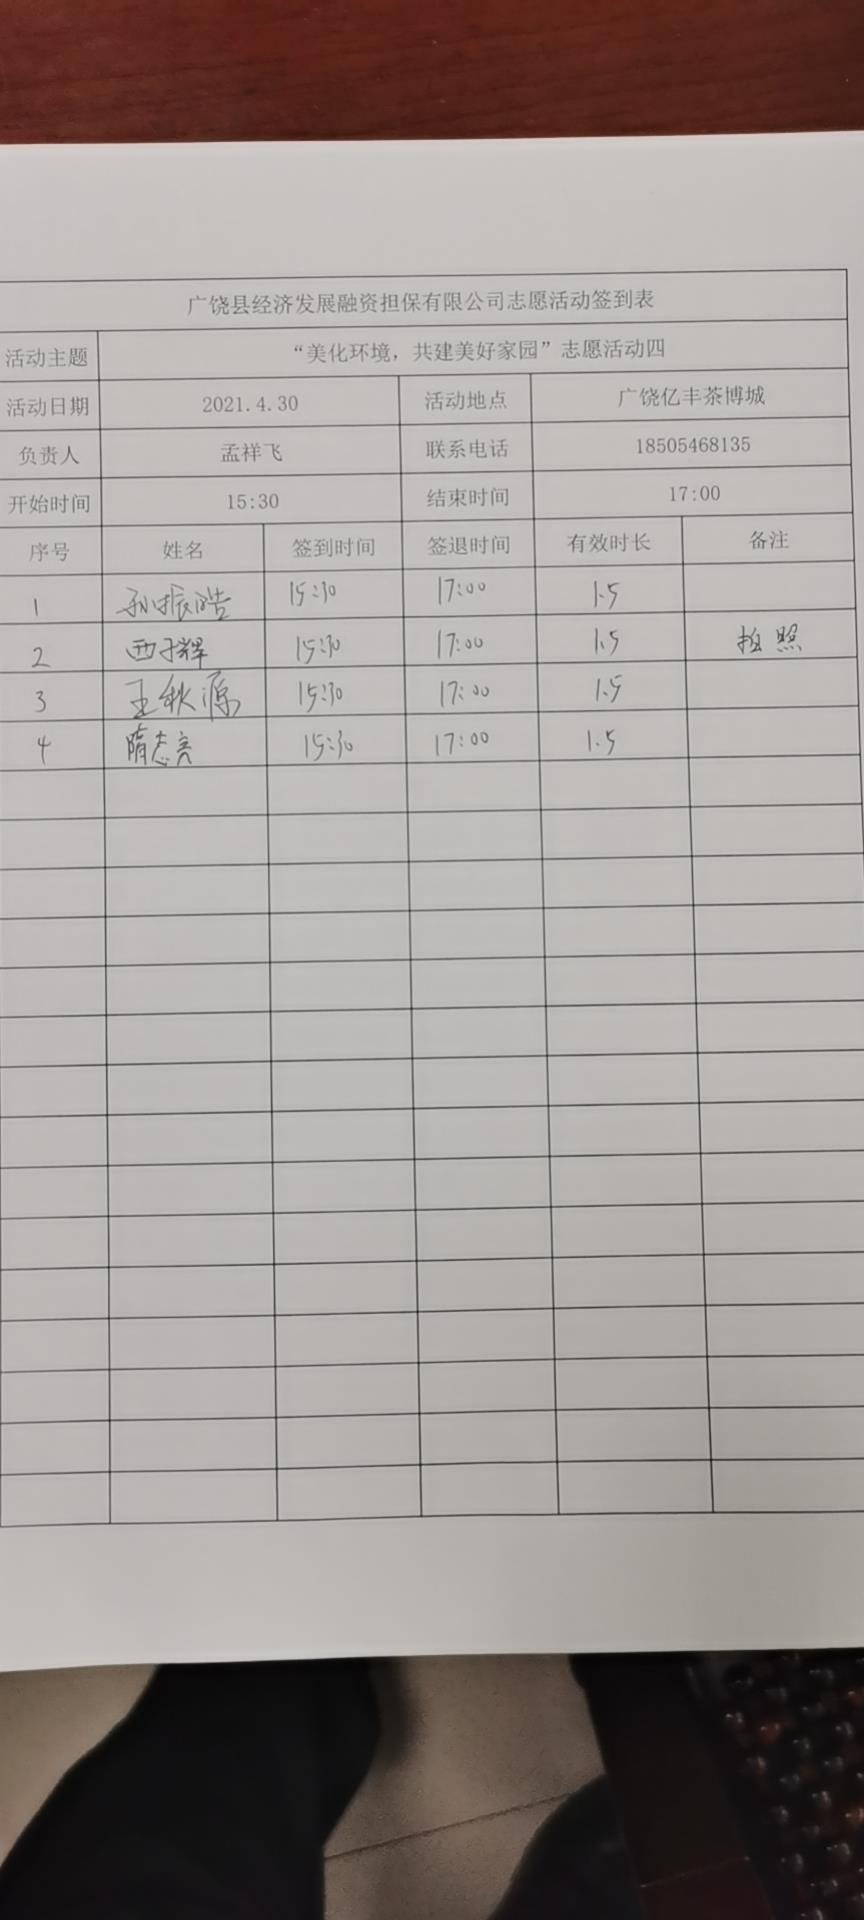 广饶县经济发展融资担保有限公司志愿活动签到表
活动主题 “美化环境，共建美好家园”志愿活动四
活动日期 2021.4.30 活动地点 广饶亿丰茶博城
负责人 孟祥飞 联系电话 18505468135
开始时间 15:30 结束时间 17:00
序号 姓名 签到时间 签退时间 有效时长 备注
1 孙振皓 15:30 17:00 1.5
2 西子辉 15:30 17:00 1.5 拍照
3 王秋源 15:30 17:00 1.5
4 隋志亮 15:30 17:00 1.5